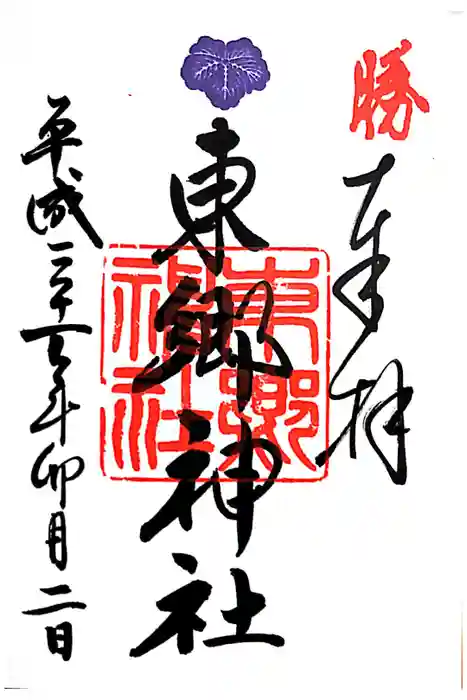 勝
奉拝
東郷神社
東郷
神社
平成 年卯月二日